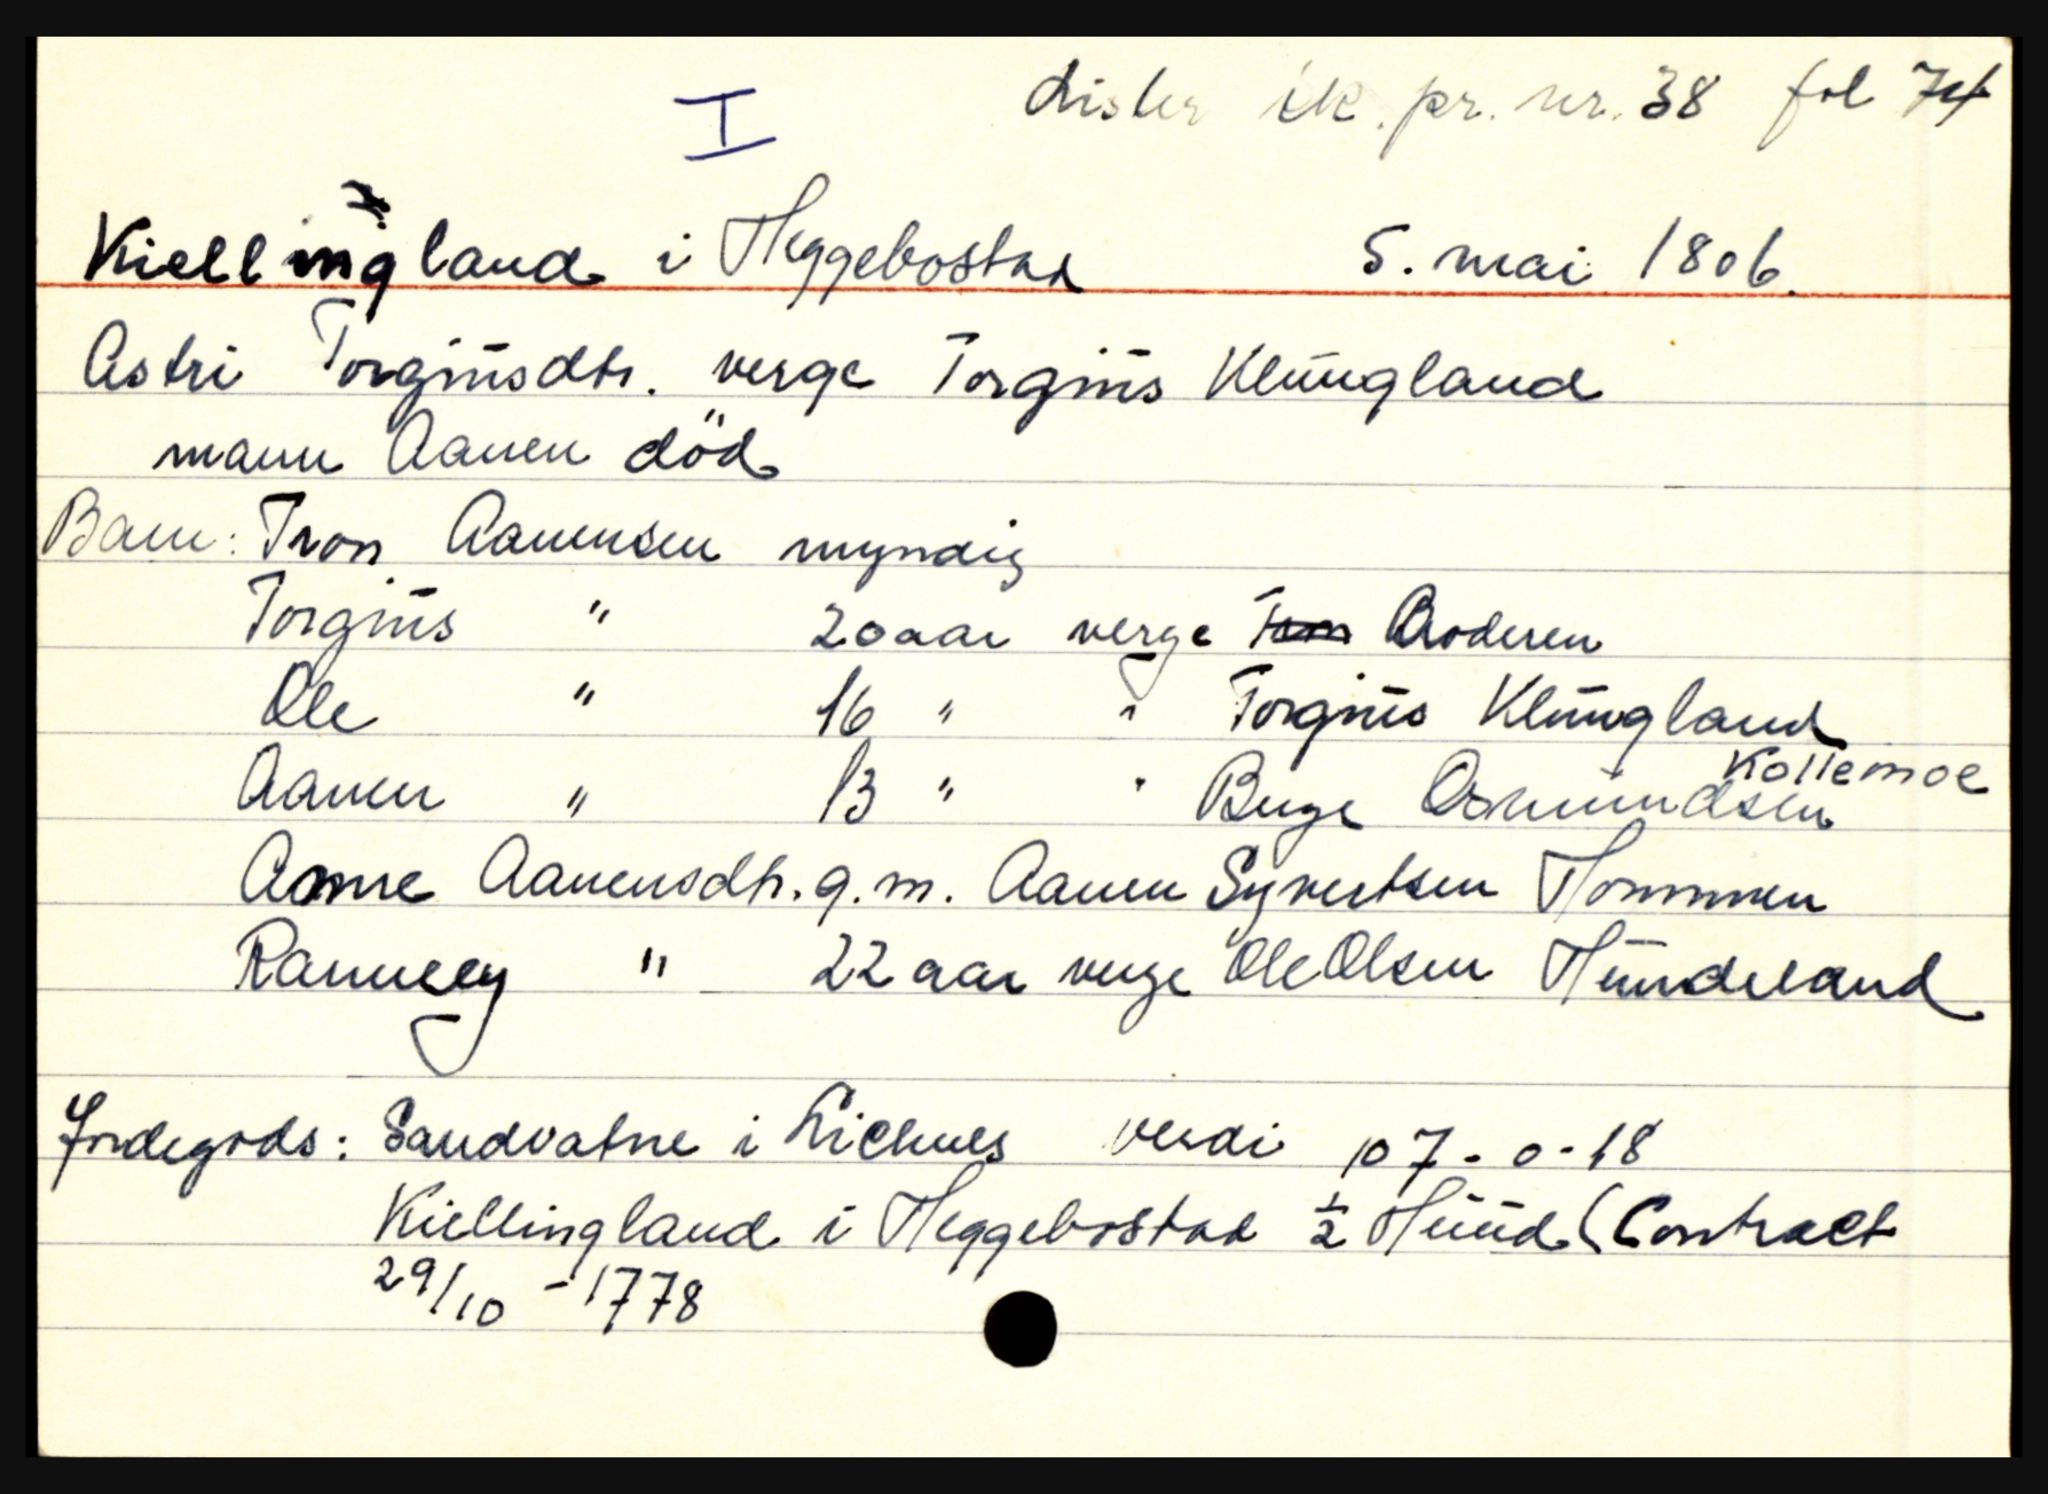 I Lister sk. pr. nr. 38 fol 74
Kiellingland i Heggebostad 5. mai 1806.
Astri Torgiusdtr. verge Torgius Klungland
mann Aanen död
Barn: Tron Aanensen myndig
Torgius " 20 aar verge Broderen
Ole " 16 " " Torgius Klungland
Kollemoe
Aanen " 13 " " Berge Osmundsen
Anne Aanensdtr. g. m. Aanen Syvertsen Hommen
Ranney " 22 aar verge Ole Olsen Hundeland
Jordegods: Sandvatne i Lichnes verdi 107-0-18
Kiellingland i Heggebostad ½ Huud (Contract
29/10 - 1778